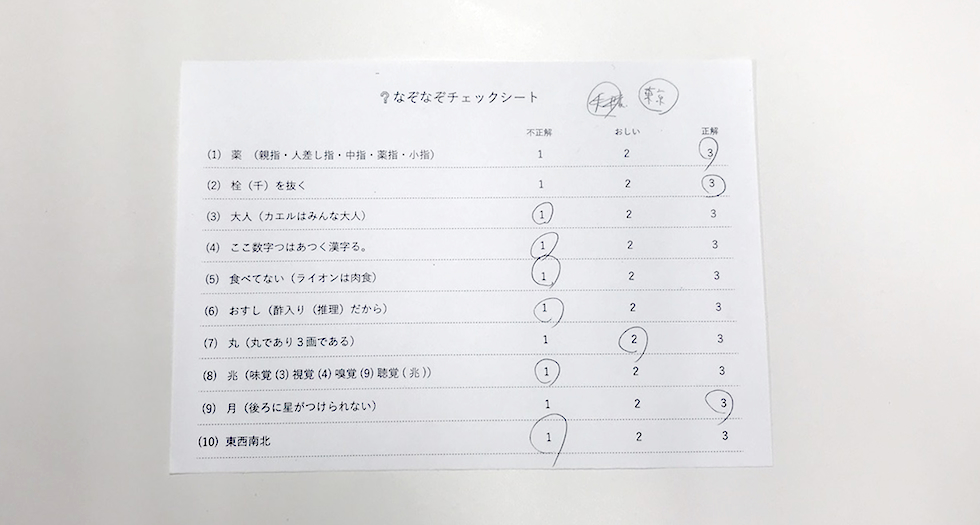 ?なぞなぞチェックシート 東京
不正解 おしい 正解
(1) 薬 (親指・人差し指・中指・薬指・小指) 1 2 3
(2) 栓(千)を抜く 1 2 3
(3) 大人(カエルはみんな大人) 1 2 3
(4) ここ数字つはあつく漢字る。 1 2 3
(5) 食べてない(ライオンは肉食) 1 2 3
(6) おすし(酢入り(推理)だから) 1 2 3
(7) 丸(丸であり3画である) 1 2 3
(8) 兆(味覚(3)視覚(4)嗅覚(9)聴覚(兆)) 1 2 3
(9) 月(後ろに星がつけられない) 1 2 3
(10) 東西南北 1 2 3